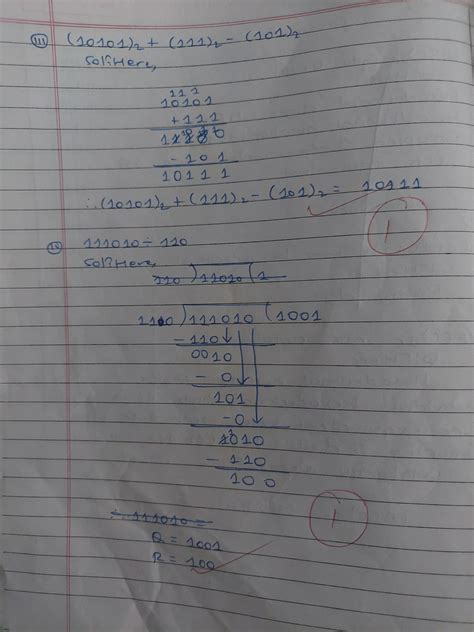 (iii) (10101)₂ + (111)₂ - (101)₂
Solⁿ: Here,
111
10101
+ 111
11100
- 101
10111
∴ (10101)₂ + (111)₂ - (101)₂ = 10111
1
111010 ÷ 110
Solⁿ: Here,
110 ) 11010 ( 1
110 ) 111010 ( 1001
- 110
0010
- 0
101
- 0
1010
- 110
100
∴ 111010 =
Q = 1001
R = 100
1